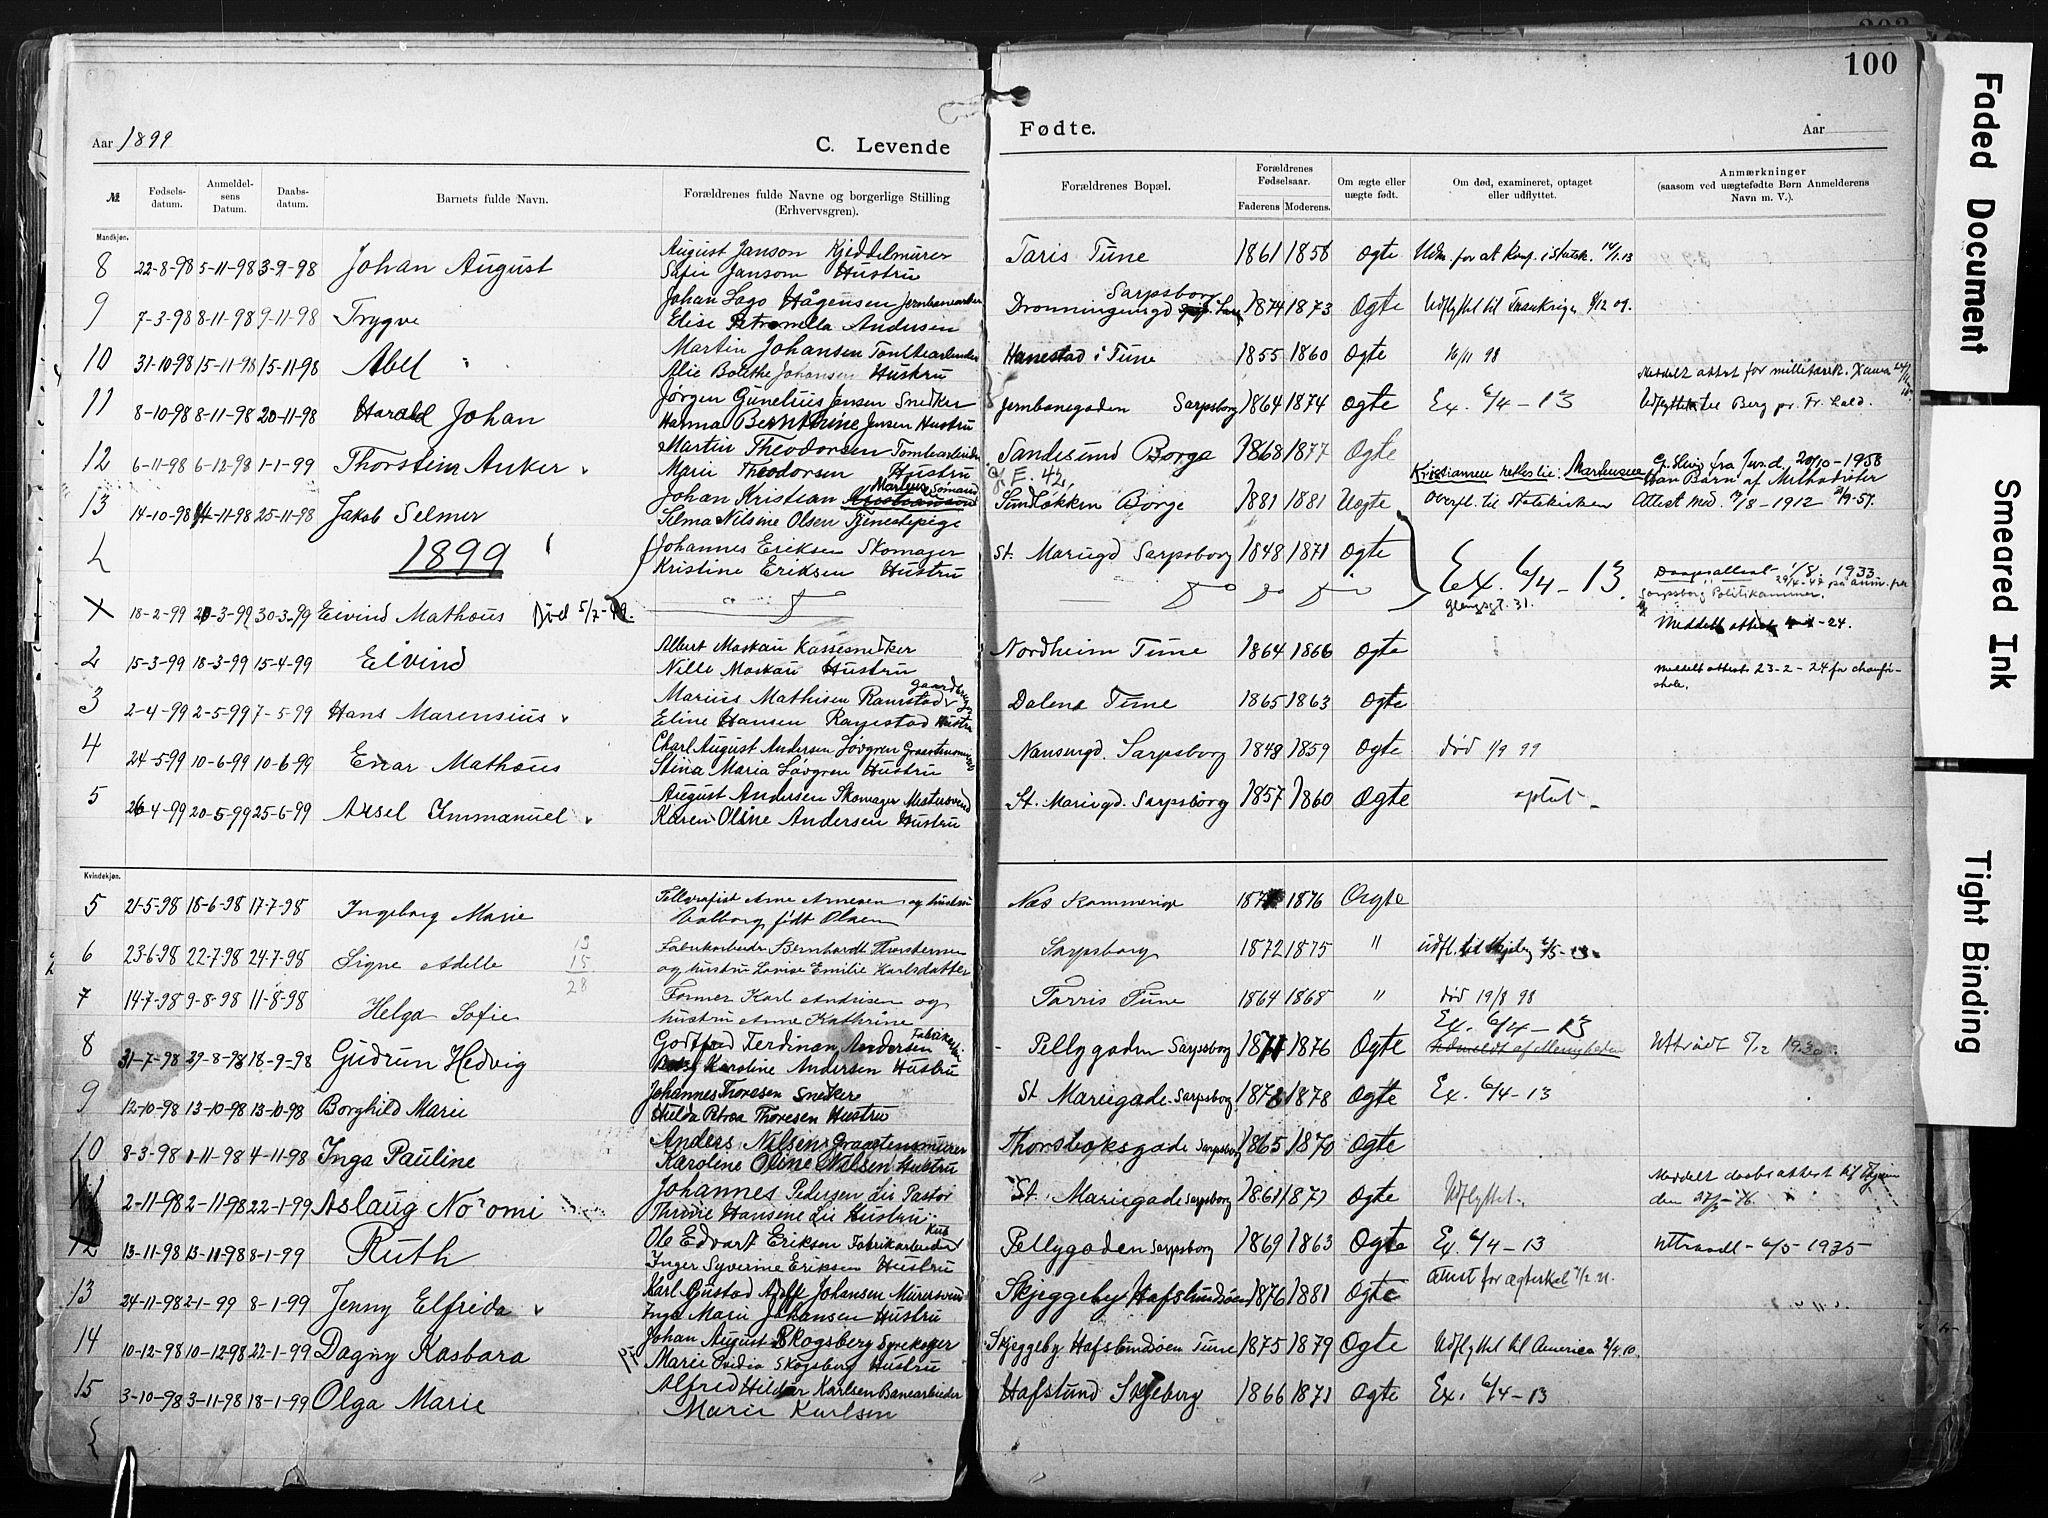 100
Aar 1899
C. Levende
Fødte.
Aar
№ Fødsels-datum. Anmeldel-sens Datum. Daabs-datum. Barnets fulde Navn. Forældrenes fulde Navne og borgerlige Stilling (Erhvervsgren). Forældrenes Bopæl. Forældrenes Fødselsaar. Faderens Moderens. Om ægte eller uægte født. Om død, examineret, optaget eller udflyttet. Anmærkninger (saasom ved uægtefødte Børn Anmelderens Navn m. V.).
Mandkjøn.
8 22-8-98 5-11-98 3-9-98 Johan August August Janson Kjeddelmurer Taris Tune 1861 1858 Ogte
Sofie Janson Hustru
9 7-3-98 8-11-98 9-11-98 Trygve Johan Lago Hågensen Jernbanearbeider Sarpsborg Dronningensgd 1874 1873 Ogte Udflyttet til
Elise Petronella Andersen
10 31-10-98 15-11-98 15-11-98 Abel Martin Johansen Hanestad i Tune 1855 1860 Ogte 16/11 98
Alie Bolethe Johansen Hustru
Meddelt attest for
11 8-10-98 8-11-98 20-11-98 Harald Johan Jørgen Gunelius Jensen Snedker Jernbanegaden Sarpsborg 1864 1874 Ogte Ex. 6/4-13 Udflyttet til Berg pr. Fr. hald.
Hanna Bernthine Jensen Hustru
12 6-11-98 6-12-98 1-1-99 Thorstein Anker Martin Theodorsen Tombearbeider Sandesund Borge 1868 1877 Ogte
Marie Theodorsen Hustru
13 14-10-98 11-11-98 25-11-98 Jakob Selmer Johan Kristian Martinsen Sømand Sundløkken Borge 1881 1881 Uogte Overfl. til Statskirken Attest med.
Selma Nilsine Olsen Tjenestepige
1899
Johannes Eriksen Skomager St. Mariegd Sarpsborg 1848 1871 Ogte
Kristine Eriksen Hustru
Ex. 6/4-13. Daapsattest 1/8. 1933
Sarpsborg Politikammer.
18-2-99 20-3-99 30-3-99 Eivind Mathæus Død 5/7-99.
Meddelt attest
2 15-3-99 18-3-99 15-4-99 Eivind Albert Moskau Kassesnedker Nordheim Tune 1864 1866 Ogte
Nille Moskau Hustru
Meddelt attest 23-2-24 for chauffør-skole.
3 2-4-99 2-5-99 7-5-99 Hans Marensius Marius Mathisen Ramstad Dalene Tune 1865 1863 Ogte
Eline Hansen Ramstad Hustru
4 24-5-99 10-6-99 10-6-99 Einar Mathæus Charl August Andersen Løvgren Nansengd. Sarpsborg 1848 1859 Ogte død 1/9 99
Stina Maria Løvgren Hustru
5 26-4-99 20-5-99 25-6-99 Aksel Emmanuel August Andersen Skomager Mestersvend St. Mariegd. Sarpsborg 1857 1860 Ogte optat
Karen Oline Andersen Hustru
Kvindekjøn.
5 21-5-98 18-6-98 17-7-98 Ingeborg Marie Tellegrafist Arne Arnesen og hustru 1876 Ægte
Valborg født Olsen
6 23-6-98 22-7-98 24-7-98 Signe Adelle Fabrikarbeider Bernhardt Thorstensen Sarpsborg 1872 1875 "
og hustru Lovise Emilie Karlsdatter
13
15
28
7 14-7-98 9-8-98 11-8-98 Helga Sofie Former Karl Andrisen og Tarris Tune 1864 1868 " død 19/8 98
hustru Anne Kathrine
8 31-7-98 29-8-98 18-9-98 Gudrun Hedvig Godtfred Ferdinan Andersen Pellygaden Sarpsborg 1876 Ogte Ex. 6/4-13 Uttrådt 5/12 1930
Karoline Andersen Hustru
9 12-10-98 13-10-98 13-10-98 Borghild Marie Johannes Thoresen Snedker St. Mariegade Sarpsborg 1878 1878 Ogte Ex. 6/4-13
Hulda Petrea Thoresen Hustru
10 8-3-98 1-11-98 4-11-98 Inga Pauline Anders Nilsen Graastensmurer Thorsbæksgade Sarpsborg 1865 1870 Ogte
Karoline Oline Nilsen Hustru
11 2-11-98 2-11-98 22-1-99 Aslaug No'omi Johannes Pedersen Lie Pastor St. Mariegade Sarpsborg 1861 1871 Ogte Udflyttet. Meddelt daabsattest
Thrine Hansene Lie Hustru
12 13-11-98 13-11-98 8-1-99 Ruth Ole Edvart Eriksen Fabrikarbeider Pellygaden Sarpsborg 1869 1863 Ogte Ex. 6/4-13 Uttraadt 6/5 1935
Inger Syverine Eriksen Hustru
13 24-11-98 2-1-99 8-1-99 Jenny Elfrida Karl Gustad Adolf Johansen Murersvend Skjeggeby Hafslundsøen 1876 1881 Ogte Attest for ægteskab
Inga Marie Johansen Hustru
14 10-12-98 10-12-98 22-1-99 Dagny Kasbara Johan August Skogsberg Skjeggeby Hafslundsøen Tune 1875 1879 Ogte Udflyttet til America 2/4 10.
Marie Skogsberg Hustru
15 3-10-98 3-11-98 18-1-99 Olga Marie Alfred Hildar Karlsen Banearbeider Hafslund Skjeberg 1866 1871 Ogte Ex. 6/4-13
Marie Karlsen
Faded Document
Smeared Ink
Tight Binding